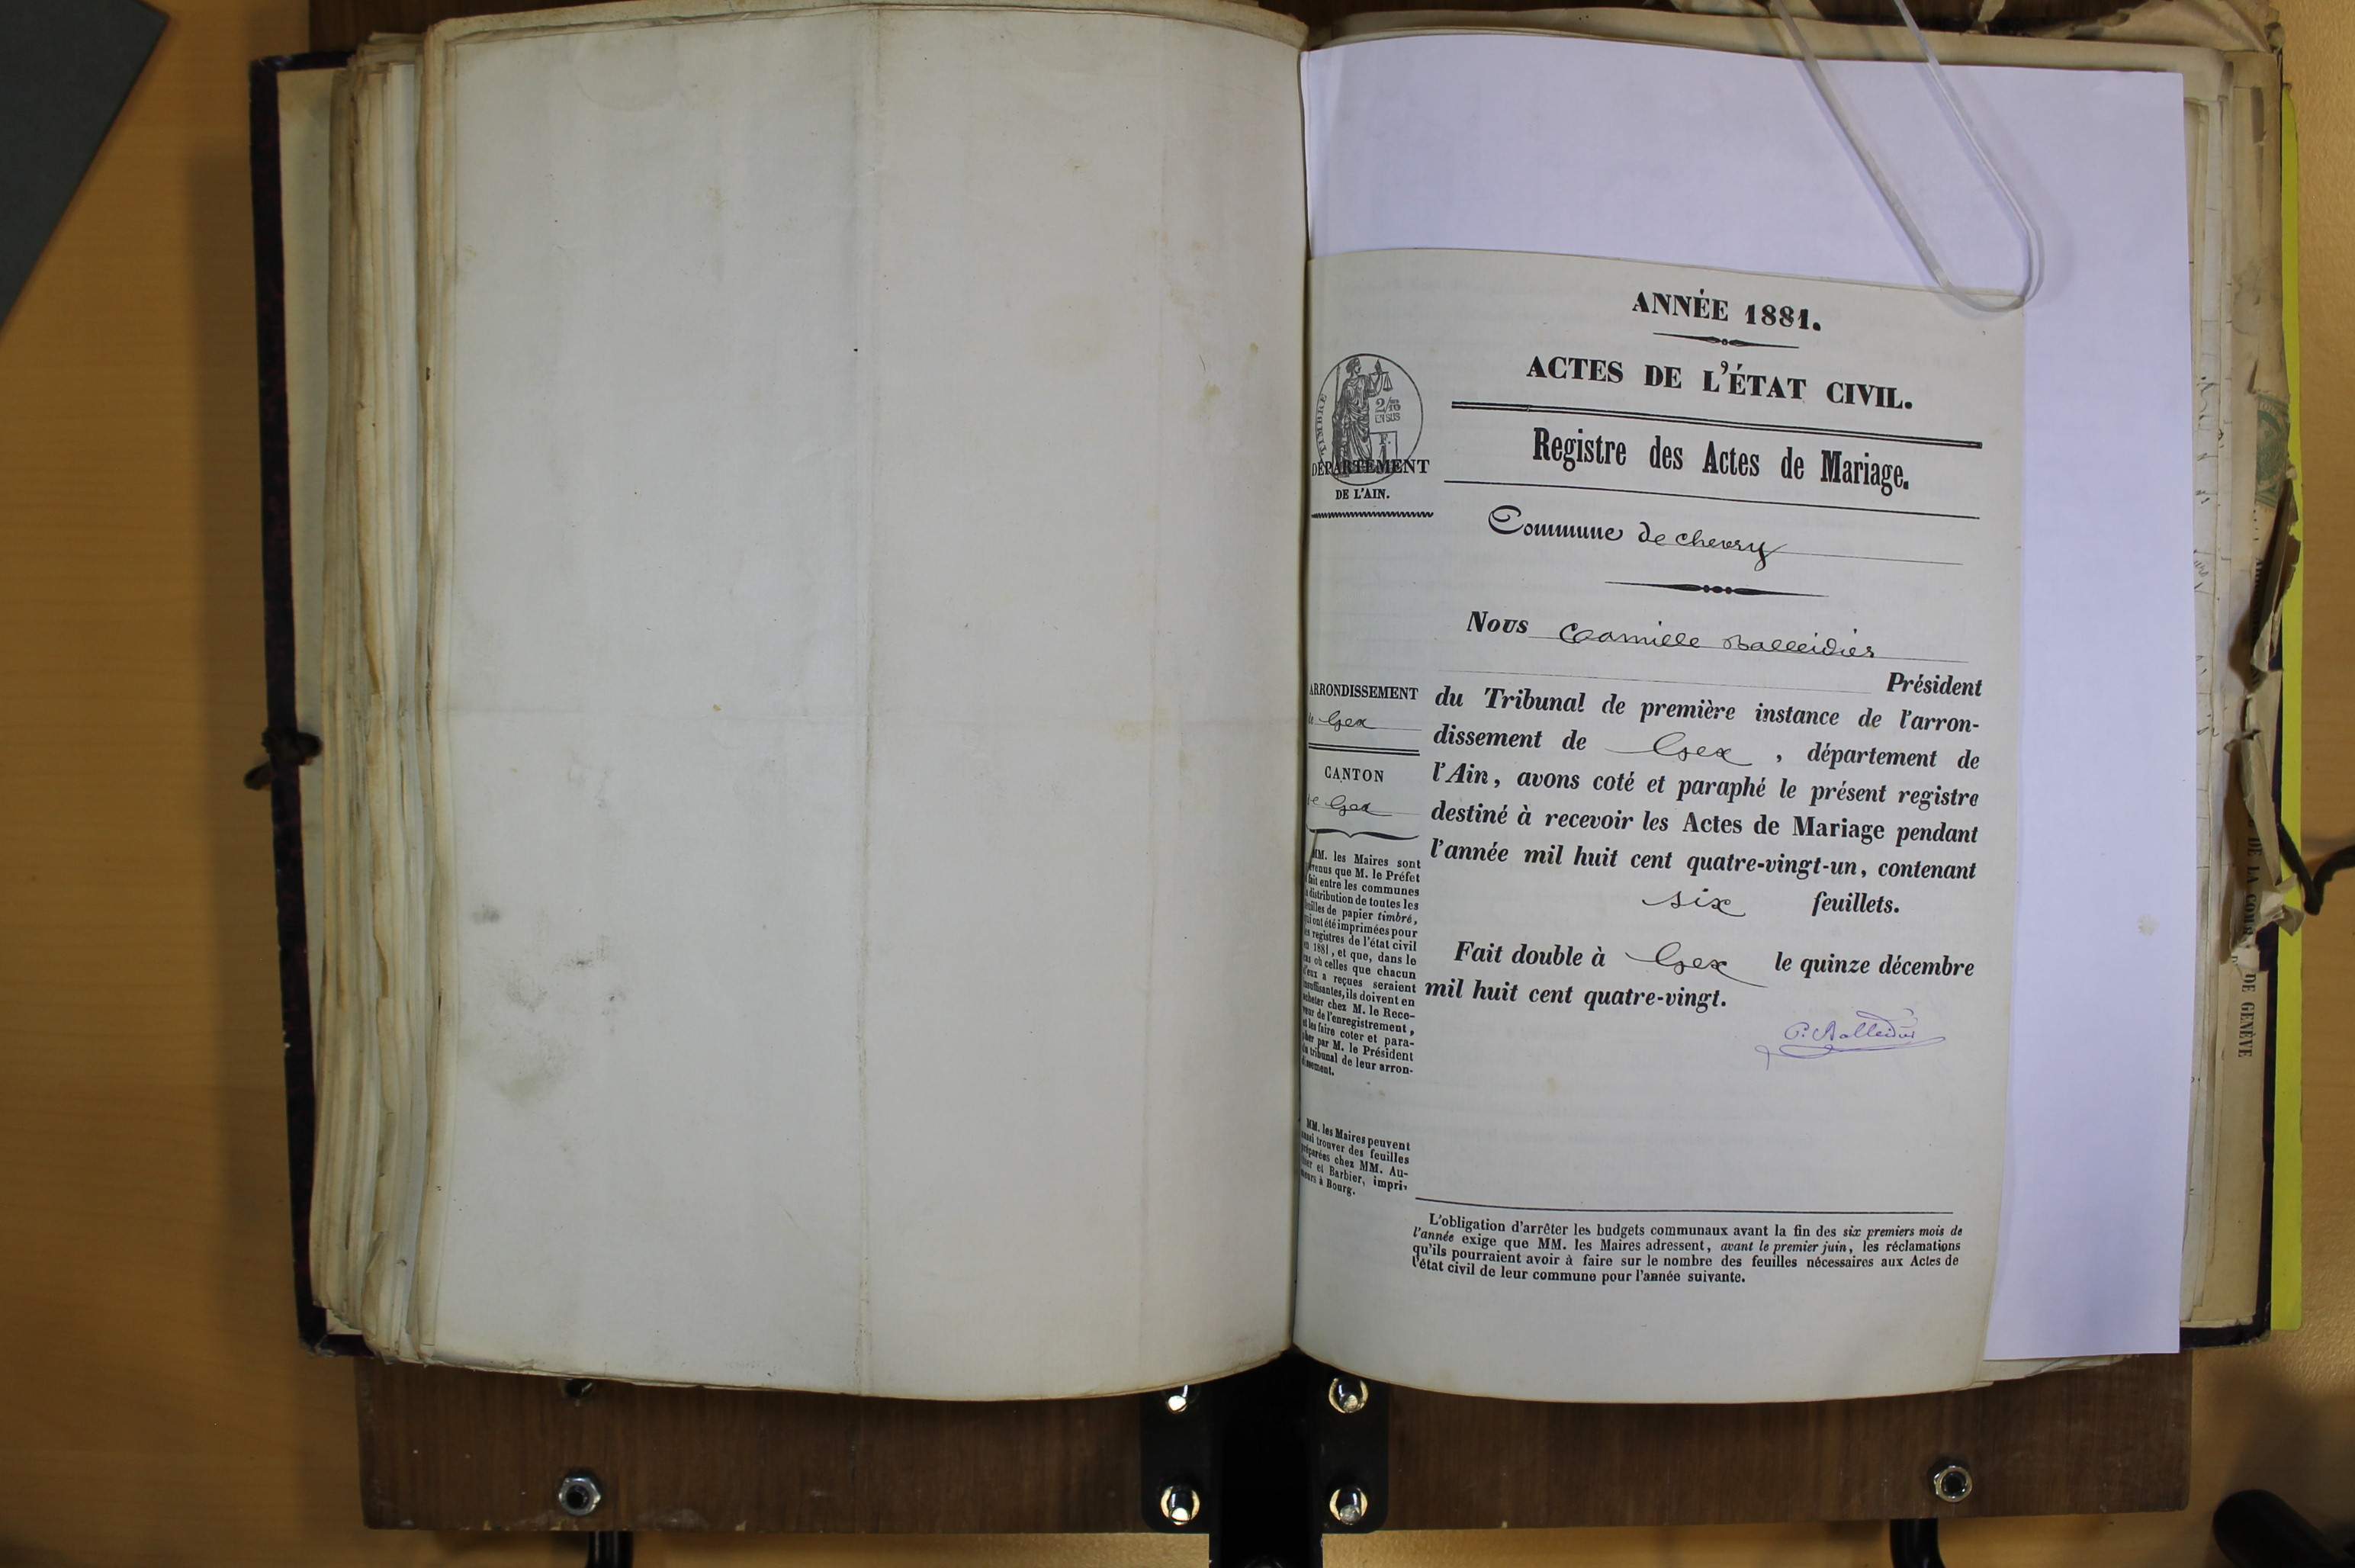 ANNÉE 1881.
ACTES DE L'ÉTAT CIVIL.
TIMBRE
2/10
EN SUS
F.
1
DÉPARTEMENT
DE L'AIN.
Registre des Actes de Mariage.
Commune de chevry
Nous Camille Balleidier
Président
ARRONDISSEMENT
de Gex
CANTON
de Gex
du Tribunal de première instance de l'arron-
dissement de Gex, département de
l'Ain, avons coté et paraphé le présent registre
destiné à recevoir les Actes de Mariage pendant
l'année mil huit cent quatre-vingt-un, contenant
six feuillets.
Fait double à Gex le quinze décembre
mil huit cent quatre-vingt.
MM. les Maires sont
venus que M. le Préfet
fait entre les communes
distribution de toutes les
feuilles de papier timbré,
qui ont été imprimées pour
les registres de l'état civil
en 1881, et que, dans le
cas où celles que chacun
d'eux a reçues seraient
insuffisantes, ils doivent en
acheter chez M. le Rece-
veur de l'enregistrement,
et les faire coter et para-
pher par M. le Président
du tribunal de leur arron-
dissement.
MM. les Maires peuvent
aussi trouver des feuilles
préparées chez MM. Au-
et Barbier, impri-
meurs à Bourg.
L'obligation d'arrêter les budgets communaux avant la fin des six premiers mois de
l'année exige que MM. les Maires adressent, avant le premier juin, les réclamations
qu'ils pourraient avoir à faire sur le nombre des feuilles nécessaires aux Actes de
l'état civil de leur commune pour l'année suivante.
DE LA DE GENÈVE